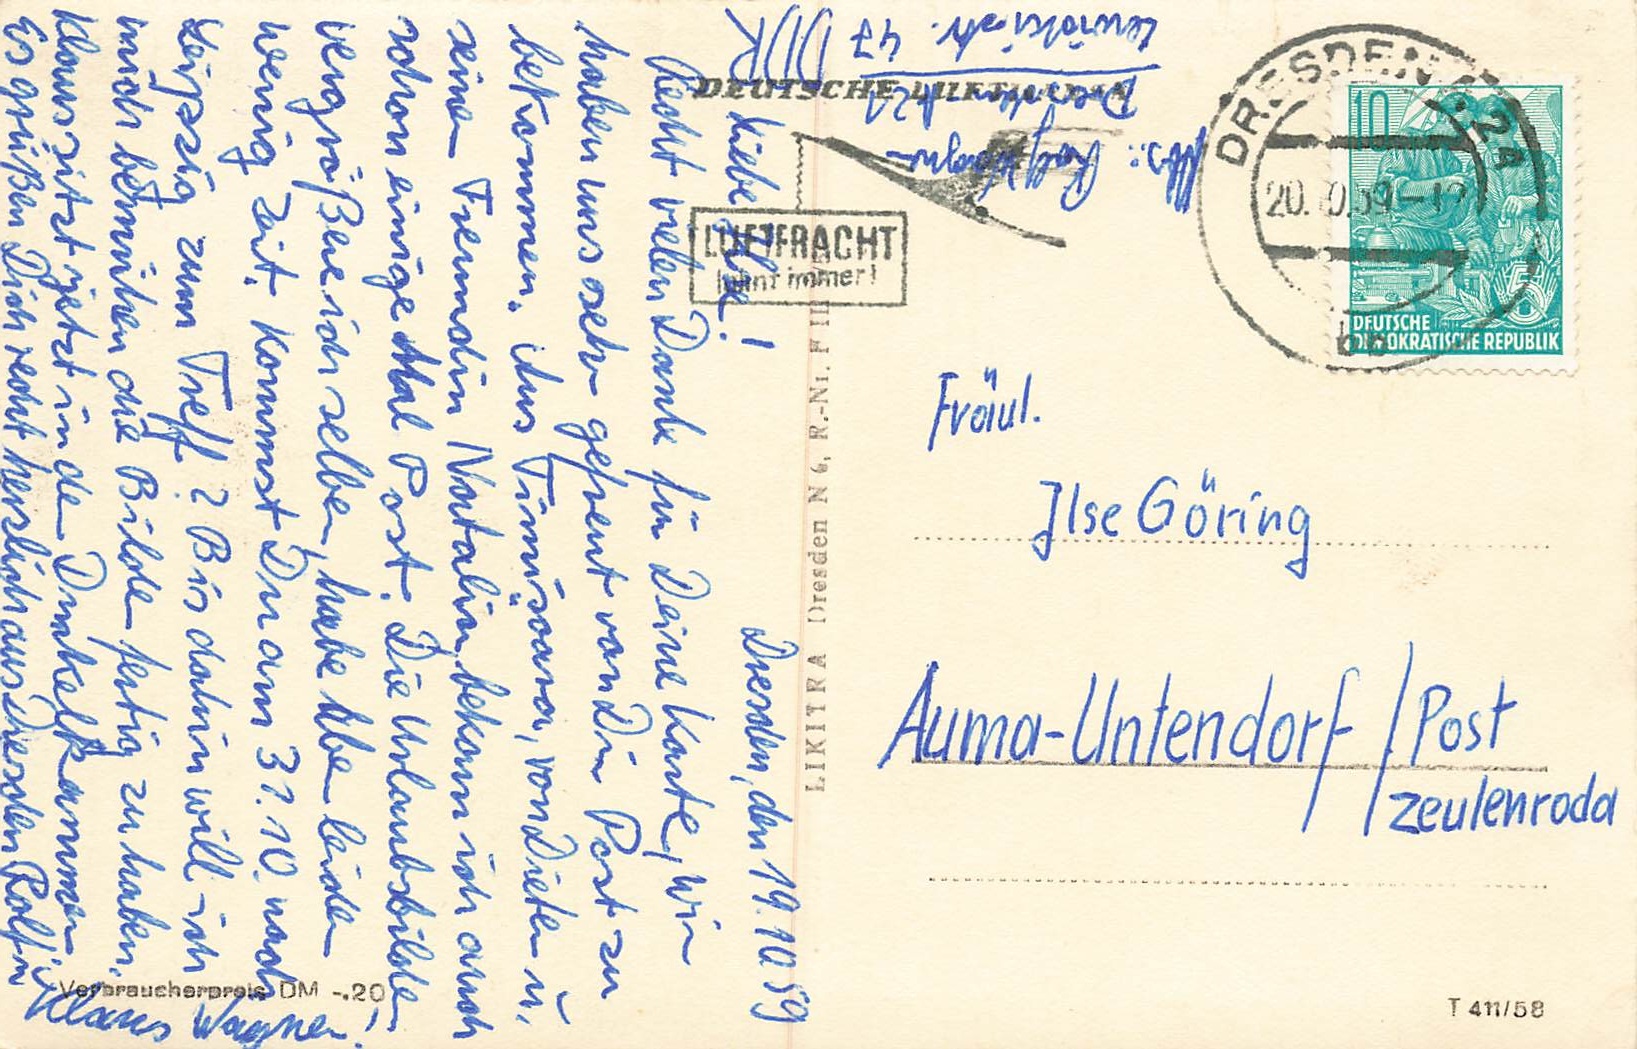 Dresden, den 19.10.59
Liebe Ilse!
Recht vielen Dank für Deine Karte, wir
haben uns sehr gefreut von Dir Post zu
bekommen. Aus Timişoara, von Dieter u.
seiner Freundin Natalia, bekam ich auch
schon einige Mal Post. Die Urlaubsbilder,
vergrößere ich selber, habe aber leider
wenig Zeit. Kommst Du am 31.10. nach
Leipzig zum Treff? Bis dahin will ich
mich bemühen die Bilder fertig zu haben.
Klaus sitzt jetzt in der Dunkelkammer.
Es grüßen Dich recht herzlich aus Dresden Ralf u.
Klaus Wagner.
Verbraucherpreis DM -.20
Abs.: Ralf Wagner
Dresden A21
47 DDR
DEUTSCHE LUFTHANSA
LUFTFRACHT
lohnt immer!
LIKITRA Dresden N 6, R.-Nr.
DRESDEN A 24
20.10.59-12
bb
10
5
DEUTSCHE
DEMOKRATISCHE REPUBLIK
Fräul.
Ilse Göring
Auma-Untendorf / Post
Zeulenroda
T 411/58